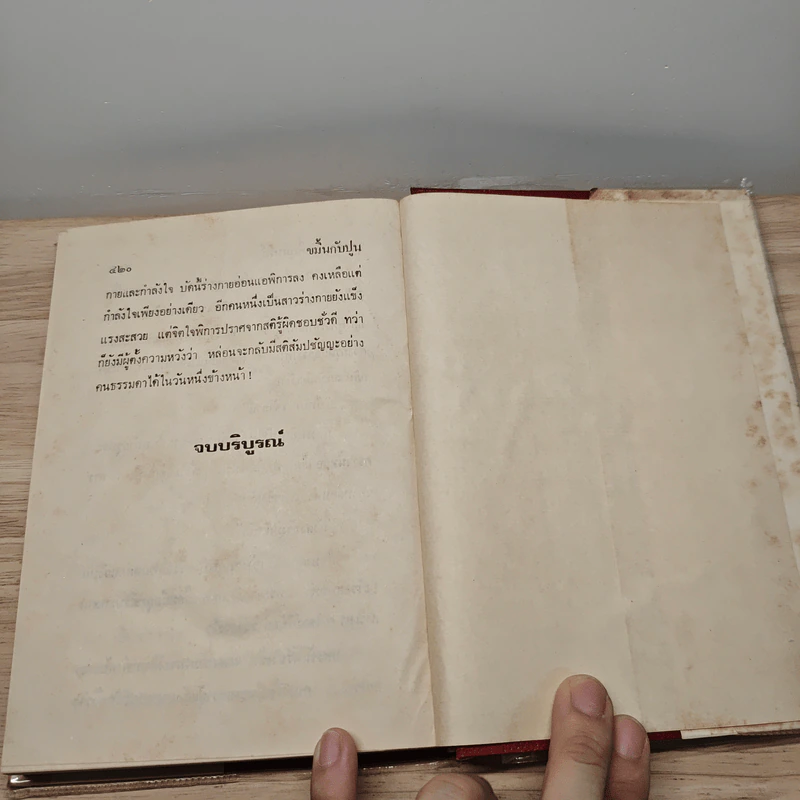 ๔๒๐
ขมิ้นกับปูน
กายและกำลังใจ บัดนี้ร่างกายอ่อนแอพิการลง คงเหลือแต่
กำลังใจเพียงอย่างเดียว อีกคนหนึ่งเป็นสาวร่างกายยังแข็ง
แรงสะสวย แต่จิตใจพิการปราศจากสติรู้ผิดชอบชั่วดี ทว่า
ก็ยังมีผู้ตั้งความหวังว่า หล่อนจะกลับมีสติสัมปชัญญะอย่าง
คนธรรมดาได้ในวันหนึ่งข้างหน้า !
จบบริบูรณ์